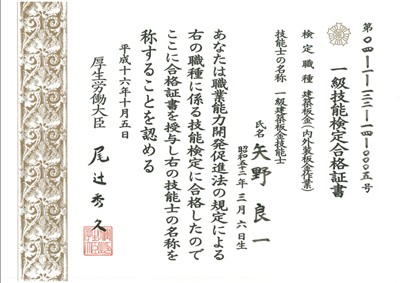 第〇四-一-三三-一四-〇〇〇五号
一級技能検定合格証書
検定職種 建築板金(内外装板金作業)
技能士の名称 一級建築板金技能士
氏名 矢野良一
昭和五十二年三月六日生
あなたは職業能力開発促進法の規定による
右の職種に係る技能検定に合格したので
ここに合格証書を授与し右の技能士の名称を
称することを認める
平成十六年十月五日
厚生労働大臣 尾辻秀久